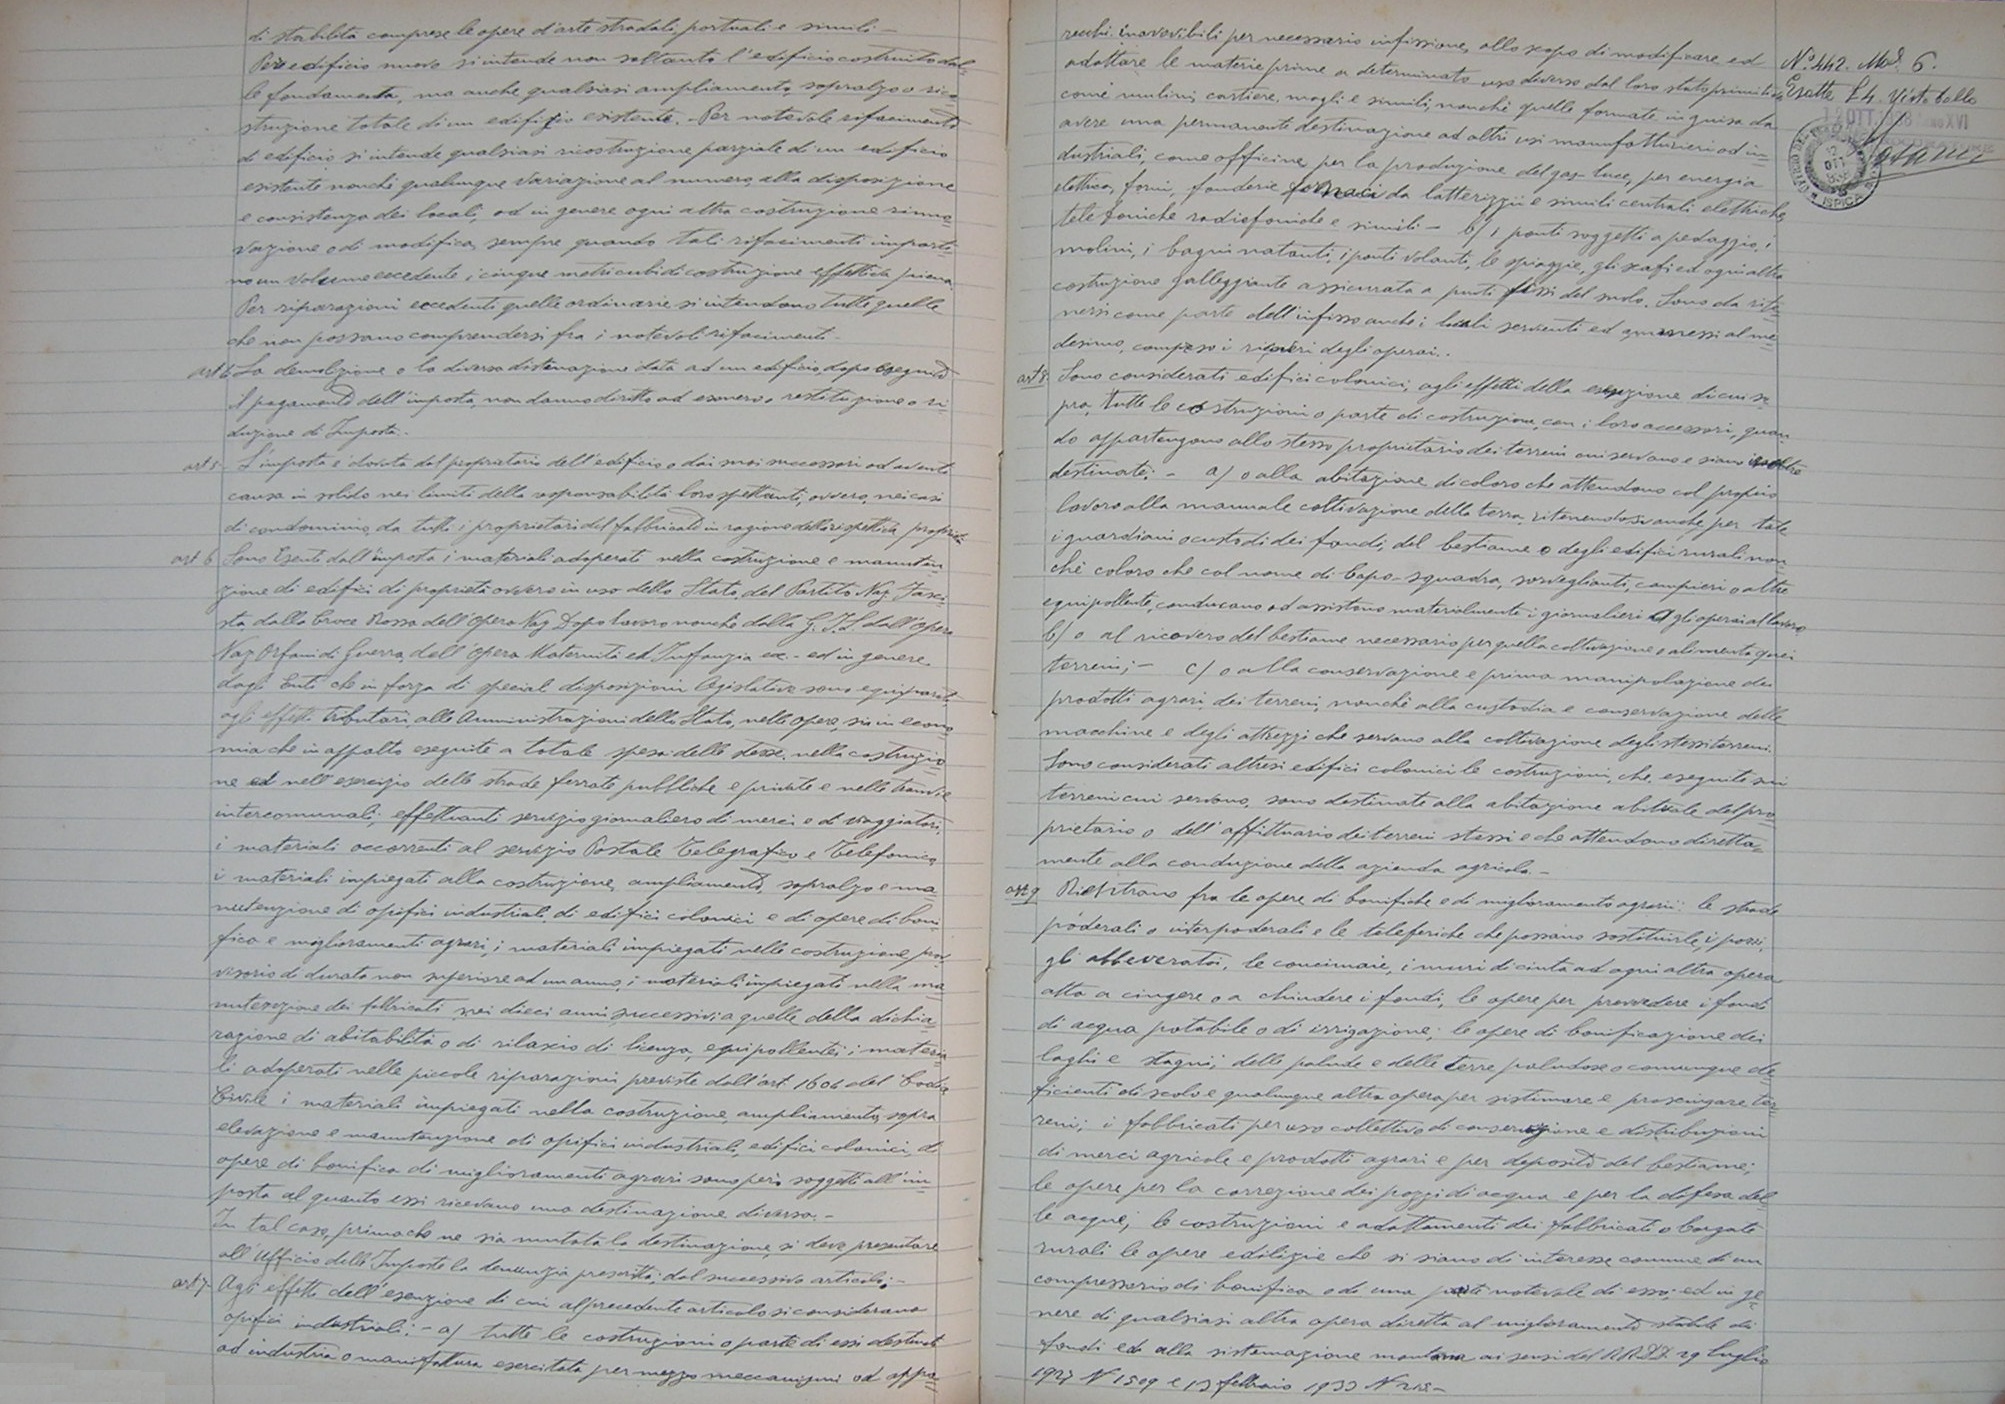 di stabilità comprese le opere d'arte stradali, portuali e simili.—
Per edificio nuovo si intende non soltanto l'edificio costruito dal-
le fondamenta, ma anche qualsiasi ampliamento, sopralzo o rico-
struzione totale di un edificio esistente. Per notevole rifacimento
di edificio si intende qualsiasi ricostruzione parziale di un edificio
esistente nonchè qualunque variazione al numero, alla disposizione
e consistenza dei locali, od in genere ogni altra costruzione rinno-
vazione o di modifica, sempre quando tali rifacimenti importi-
no un volume eccedente i cinque metri cubi di costruzione effettiva piena.
Per riparazioni eccedenti quelle ordinarie si intendono tutte quelle
che non possano comprendersi fra i notevoli rifacimenti.—
La demolizione o la diversa destinazione data ad un edificio, dopo eseguito
il pagamento dell'imposta, non danno diritto ad esonero o restituzione o ri-
duzione di Imposta.
art 5- L'imposta è dovuta dal proprietario dell'edificio o dai suoi successori od aventi
causa in solido nei limiti della responsabilità loro spettanti, ovvero, nei casi
di condominio, da tutti i proprietari del fabbricato in ragione della rispettiva proprietà
art 6 Sono Esenti dall'imposta i materiali adoperati nella costruzione e manuten-
zione di edifici di proprietà ovvero in uso dello Stato, del Partito Naz. Fasci-
sta, dalla Croce Rossa dell'Opera Naz Dopolavoro nonchè dalla G.I.L dall'Opera
Naz Orfani di Guerra, dell'Opera Maternità ed Infanzia ec.- ed in genere
dagli Enti che in forza di speciali disposizioni legislative sono equiparati
agli effetti tributari, alle Amministrazioni dello Stato, nelle opere, sia in econo
mia che in appalto eseguite a totale spesa delle stesse. nella costruzio-
ne ed nell'esercizio delle strade ferrate pubbliche e private e nelle tranvie
intercomunali; effettuanti servizio giornaliero di merci e di viaggiatori;
i materiali occorrenti al servizio Postale Telegrafico e Telefonico,
i materiali impiegati alla costruzione, ampliamento, sopralzo e ma-
nutenzione di opifici industriali, di edifici colonici e di opere di boni-
fica e miglioramenti agrari; i materiali impiegati nelle costruzione prov-
visorio di durata non superiore ad un anno; i materiali impiegati nella ma-
nutenzione dei fabbricati nei dieci anni successivi a quelle della dichia-
razione di abitabilità o di rilascio di licenza, equipollente; i materia-
li adoperati nelle piccole riparazioni previste dall'art. 1604 del Codice
Civile i materiali impiegati nella costruzione, ampliamento, sopra
elevazione e manutenzione di opifici industriali, edifici colonici, di
opere di bonifica di miglioramenti agrari sono però soggetti all'im-
posta al quanto essi ricevano una destinazione diversa.—
In tal caso, prima che ne sia mutata la destinazione, si deve presentare
all'Ufficio delle Imposte la denunzia prescritta, dal successivo articolo;—
art 7- Agli effetti dell'esenzione di cui al precedente articolo si considerano
opifici industriali:— a) tutte le costruzioni o parte di essi destinate
ad industria o manifattura esercitata per mezzo meccanismi od appa-
recchi inamovibili per necessario infissione, allo scopo di modificare ed
adattare le materie prime a determinato uso diverso dal loro stato primitivo
come mulini, cartiere, magli e simili, nonchè quelle formate in guisa da
avere una permanente destinazione ad altri usi manufatturieri od in-
dustriali, come officine per la produzione del gas-luce, per energia
elettrica, forni, fonderie fornaci da latterizii e simili centrali elettriche,
telefoniche radiofoniche e simili — b) i ponti soggetti a pedaggio, i
molini, i bagni natanti, i ponti volanti, le spiaggie, gli scafi ed ogni altra
costruzione galleggiante assicurata a punti fissi del suolo. Sono da rite-
nersi come parte dell'infisso anche i locali servienti ed ammessi al me-
desimo, compreso i ricoveri degli operai..
art 8. Sono considerati edifici colonici, agli effetti della esenzione di cui so-
pra, tutte le costruzioni o parte di costruzione, con i loro accessori, quan
do appartengono allo stesso proprietario dei terreni cui servano e siano inoltre
destinate:- a) o alla abitazione di coloro che attendono col proprio
lavoro alla manuale coltivazione della terra, ritenendosi anche per tale
i guardiani o custodi dei fondi, del bestiame o degli edifici rurali non-
chè coloro che col nome di Capo-squadra, sorveglianti, campieri o altre
equipollente, conducano od assistono materialmente i giornalieri o gli operai al lavoro
b) o al ricovero del bestiame necessario per quella coltivazione o alimento quei
terreni;— c) o alla conservazione e prima manipolazione dei
prodotti agrari, dei terreni, nonchè alla custodia e conservazione delle
macchine e degli attrezzi che servano alla coltivazione degli stessi terreni.
Sono considerati altresì edifici colonici le costruzioni, che, eseguite sui
terreni cui servono, sono destinate alla abitazione abituale del pro-
prietario o dell'affittuario dei terreni stessi e che attendono diretta-
mente alla conduzione della azienda agricola.—
art 9 Rientrano fra le opere di bonifiche e di miglioramento agrarii: le strade
poderali o interpoderali e le teleferiche che possano sostituirle, i pozzi,
gli abbeveratoi, le concimaie, i muri di cinta ad ogni altra opera
atta a cingere o a chiudere i fondi, le opere per provvedere i fondi
di acqua potabile o di irrigazione; le opere di bonificazione dei
laghi e stagni, delle palude e delle terre paludose o comunque de-
ficienti di scolo e qualunque altra opera per sistimare e prosciugare ter-
reni; i fabbricati per uso collettivo di conservazione e distribuzioni
di merci agricole e prodotti agrari e per deposito del bestiame;
le opere per la correzione dei pozzi di acqua e per la difesa del-
le acque; le costruzioni e adattamenti dei fabbricati o borgate
rurali le opere edilizie che si siano di interesse comune di un
compressorio di bonifica o di una parte notevole di esso; ed in ge-
nere di qualsiasi altra opera diretta al miglioramento stabile di
fondi ed alla sistemazione montana ai sensi del RR.DD. 29 luglio
1927 N 1509 e 13 febbraio 1933 N 215—
N° 442. Mod. 6.
Esatte L 4. Visto bollo
12 OTT. 1938 Anno XVI
ISPICA